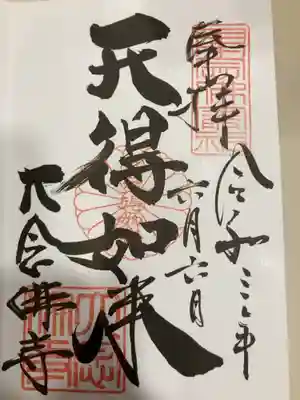 奉拝
令和三年
六月六日
天得如来
大念佛寺